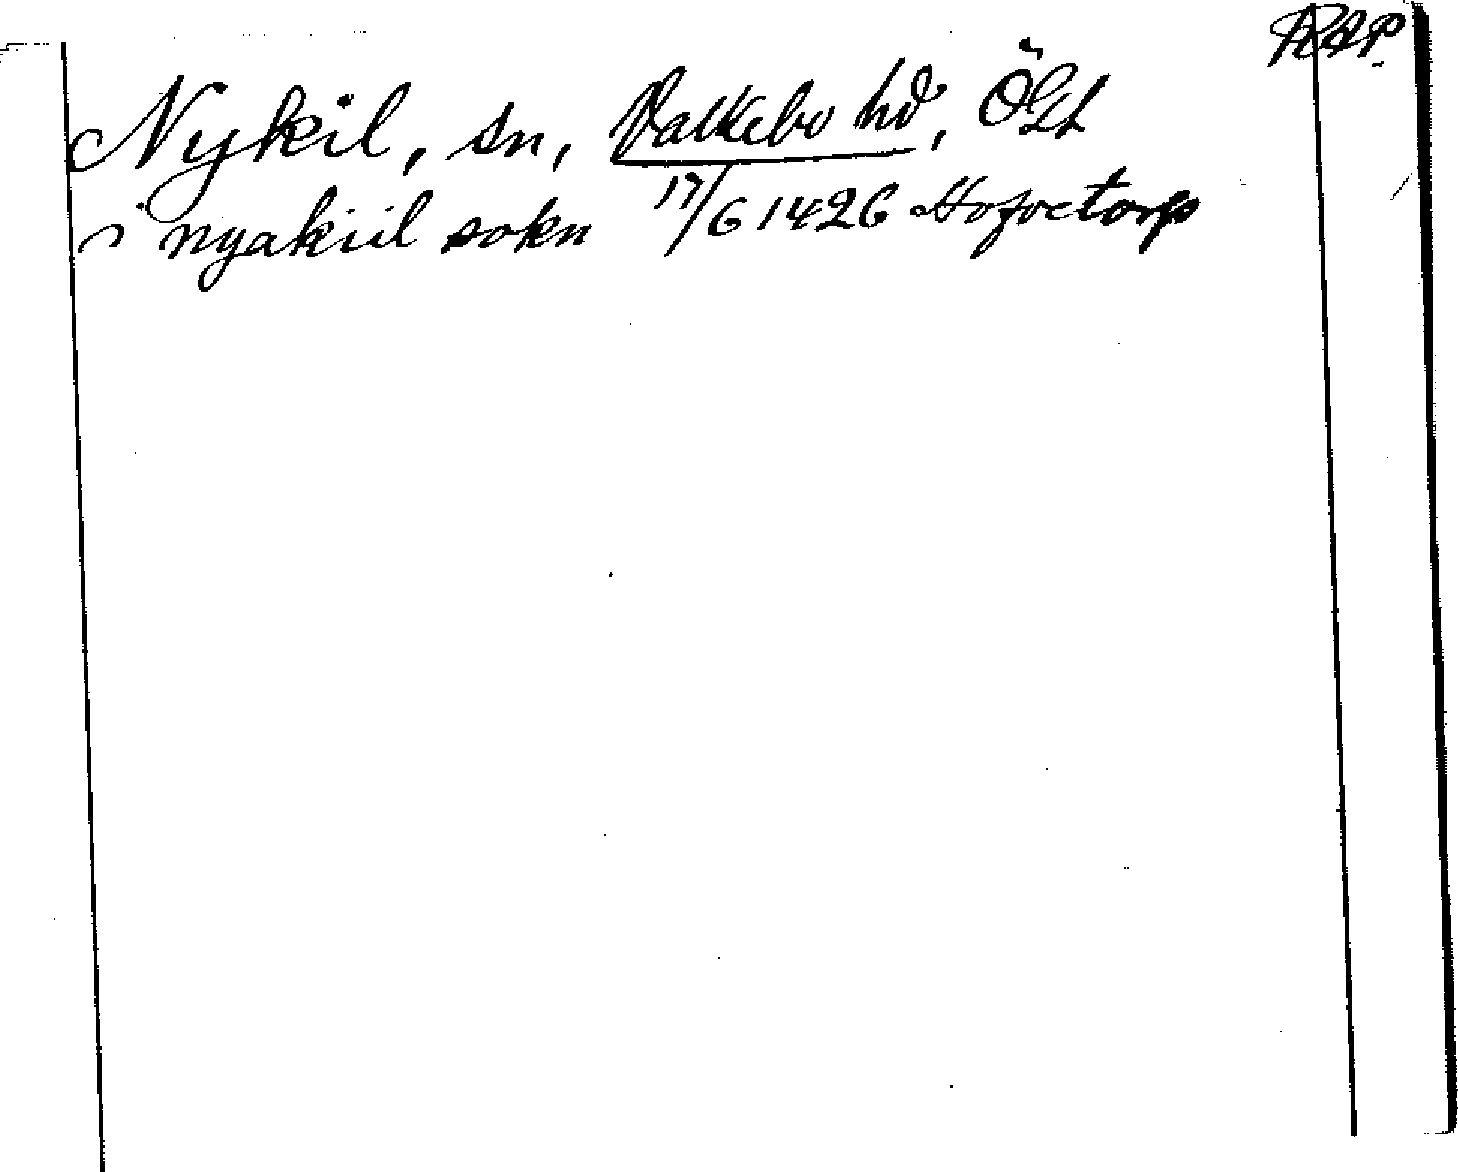 RAP
Nykil, sn, Valkebo hd, Ögl
i nyakiil sokn 17/6 1426 Hofoetorp